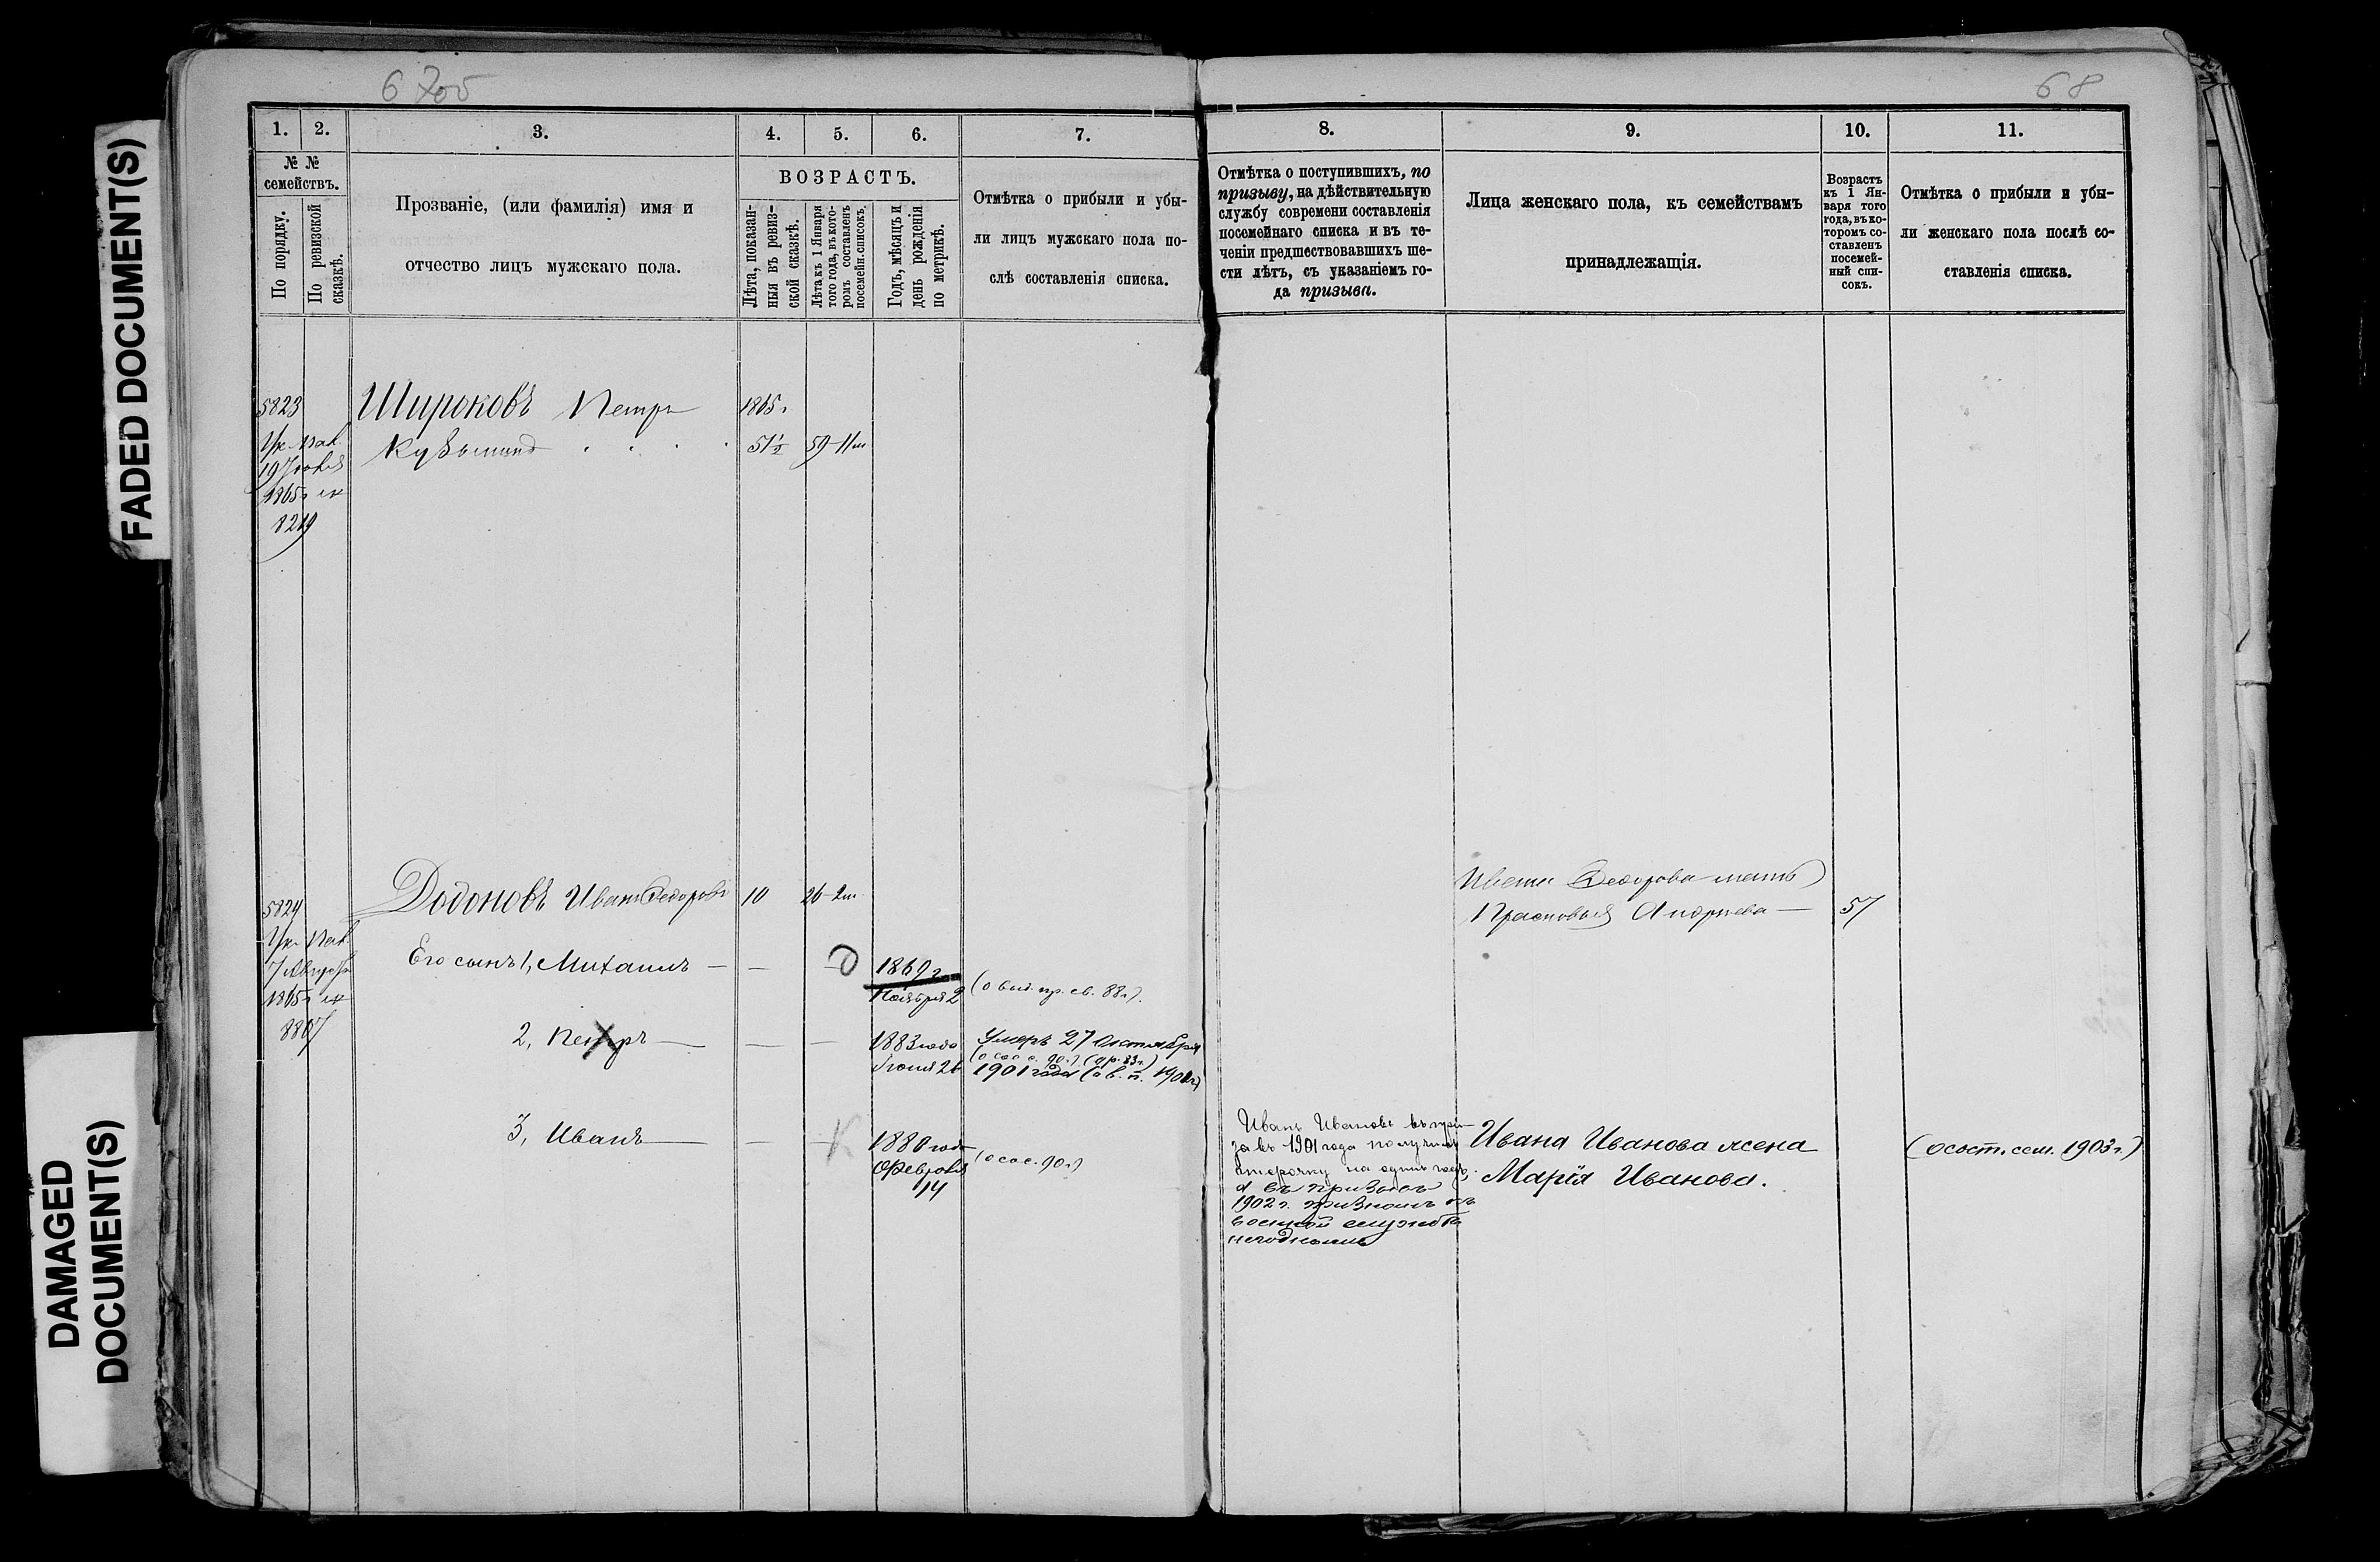 FADED DOCUMENT(S)
DAMAGED
DOCUMENT(S)
68
1.
2.
3.
4.
5.
6.
7.
8.
9.
10.
11.
№ №
семействъ.
По порядку.
По ревизской
сказкѣ.
Прозваніе, (или фамилія) имя и
отчество лицъ мужскаго пола.
ВОЗРАСТЪ.
Лѣта, показан-
ныя въ ревиз-
ской сказкѣ.
Лѣта къ 1 Января
того года, въ кото-
ромъ составленъ
посемейн. списокъ.
Годъ, мѣсяцъ и
день рожденія
по метрикѣ.
Отмѣтка о прибыли и убы-
ли лицъ мужскаго пола по-
слѣ составленія списка.
Отмѣтка о поступившихъ, по
призыву, на дѣйствительную
службу современи составленія
посемейнаго списка и въ те-
ченіи предшествовавшихъ ше-
сти лѣтъ, съ указаніемъ го-
да призыва.
Лица женскаго пола, къ семействамъ
принадлежащія.
Возрастъ
къ 1 Ян-
варя того
года, въ ко-
торомъ со-
ставленъ
посемей-
ный спи-
сокъ.
Отмѣтка о прибыли и убы-
ли женскаго пола послѣ со-
ставленія списка.
5823
Широковъ Петръ
1865 г
Ук. Пал.
Кузьминъ
51½
59-11м
1865 г
8219
5824
Додоновъ Иванъ Федоровъ
10
26-2м
Ивана Федорова мать
Прасковья Андреева
57
Ук. Пал.
7 Августа
1865 г
8807
Его сынъ 1, Михаилъ
1869 г
Ноября 2
2, Петръ
1883 года
Іюня 26
Умеръ 27 Октября
1901 года
3, Иванъ
1880 года
Февраля
14
Иванъ Ивановъ въ при-
зывъ 1901 года получилъ
отсрочку на одинъ годъ,
а въ призывъ
1902 г. признанъ къ
военной службѣ
негоднымъ
Ивана Иванова жена
Марія Иванова.
(о сост. сем. 1903 г.)